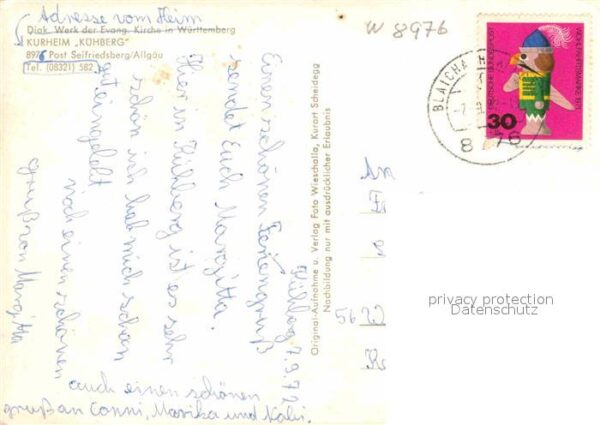 Adresse vom Heim
Diak. Werk der Evang. Kirche in Württemberg
KURHEIM „KÜHBERG"
8976 Post Seifriedsberg/Allgäu
Tel. (08321) 582
W 8976
Kühberg 7.9.72
Einen schönen Feriengruß
sendet Euch Margitta.
Hier in Kühberg ist es sehr
schön ich hab mich schon
gut eingelebt
noch einen schönen
gruß von Margitta
auch einen schönen
gruß an Conni, Marika und
Original-Aufnahme u. Verlag Foto Wieschalla, Kurort Scheidegg
Nachbildung nur mit ausdrücklicher Erlaubnis
An
DEUTSCHE BUNDESPOST
30
BLAICHA
8 76
privacy protection
Datenschutz